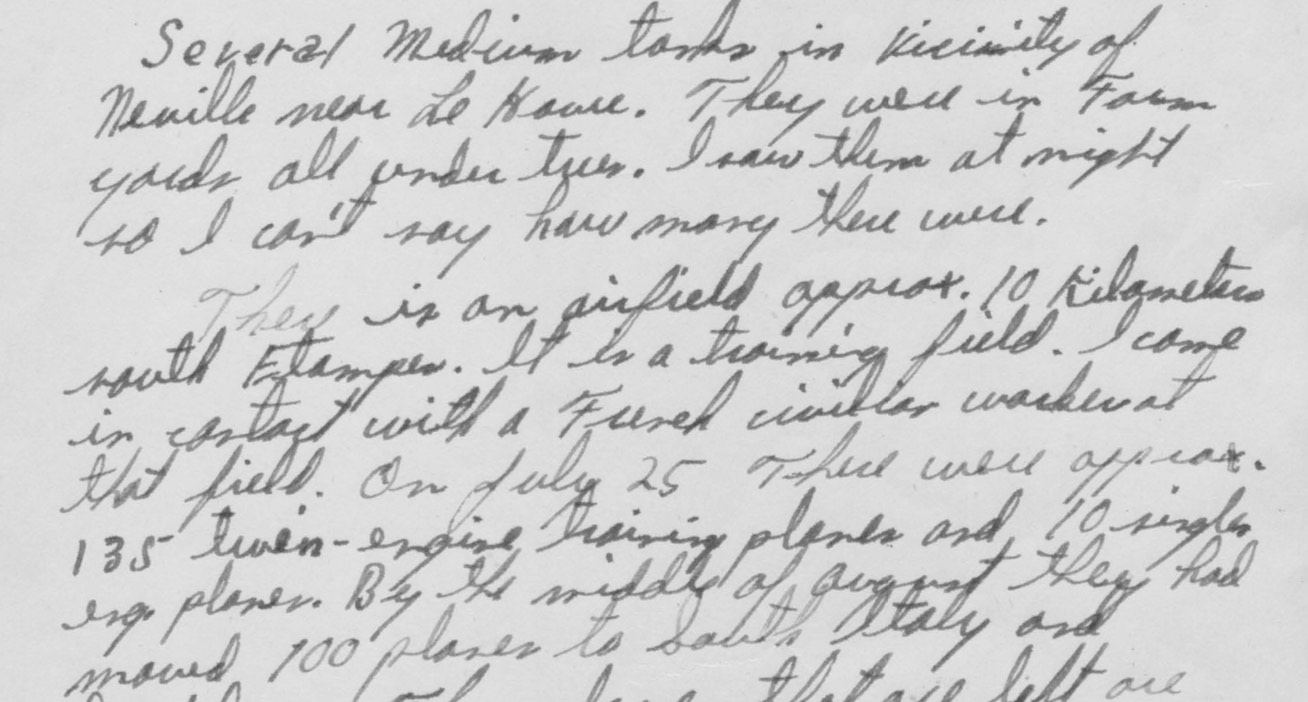 Several Medium tanks in vicinity of
Neville near Le Havre. They were in Farm
yards all under trees. I saw them at night
so I can't say how many there were.
They is an airfield approx. 10 Kilometers
south Etampes. It is a training field. I came
in contact with a French civilian worker at
that field. On July 25 There were approx.
135 twin-engine training planes and 10 single
eng. planes. By the middle of august they had
moved 100 planes to South Italy and
that are left are